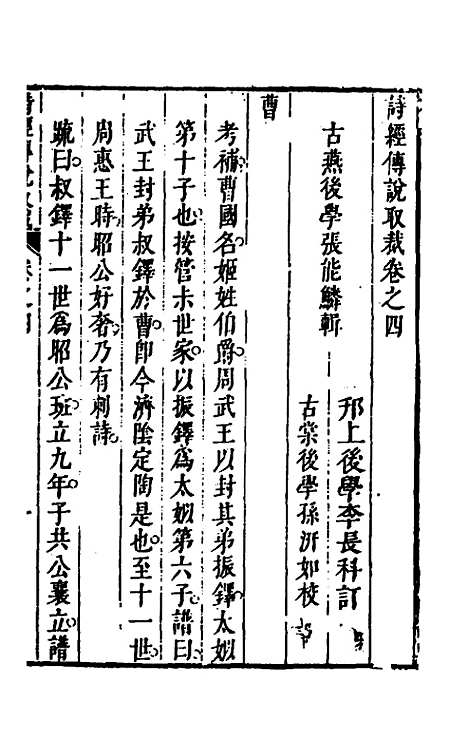 詩經傳說取裁卷之四
古燕後學張能鱗輯
邗上後學李長科訂
古棠後學孫沂如校
曹
考補曹國名姬姓伯爵周武王以封其弟振鐸太姒
第十子也按管未世家以振鐸爲太姒第六子譜曰
武王封弟叔鐸於曹卽今濟陰定陶是也至十一世
周惠王時昭公好奢乃有刺詩
疏曰叔鐸十一世爲昭公班立九年子共公襄立譜
詩經傳說取裁
卷之四